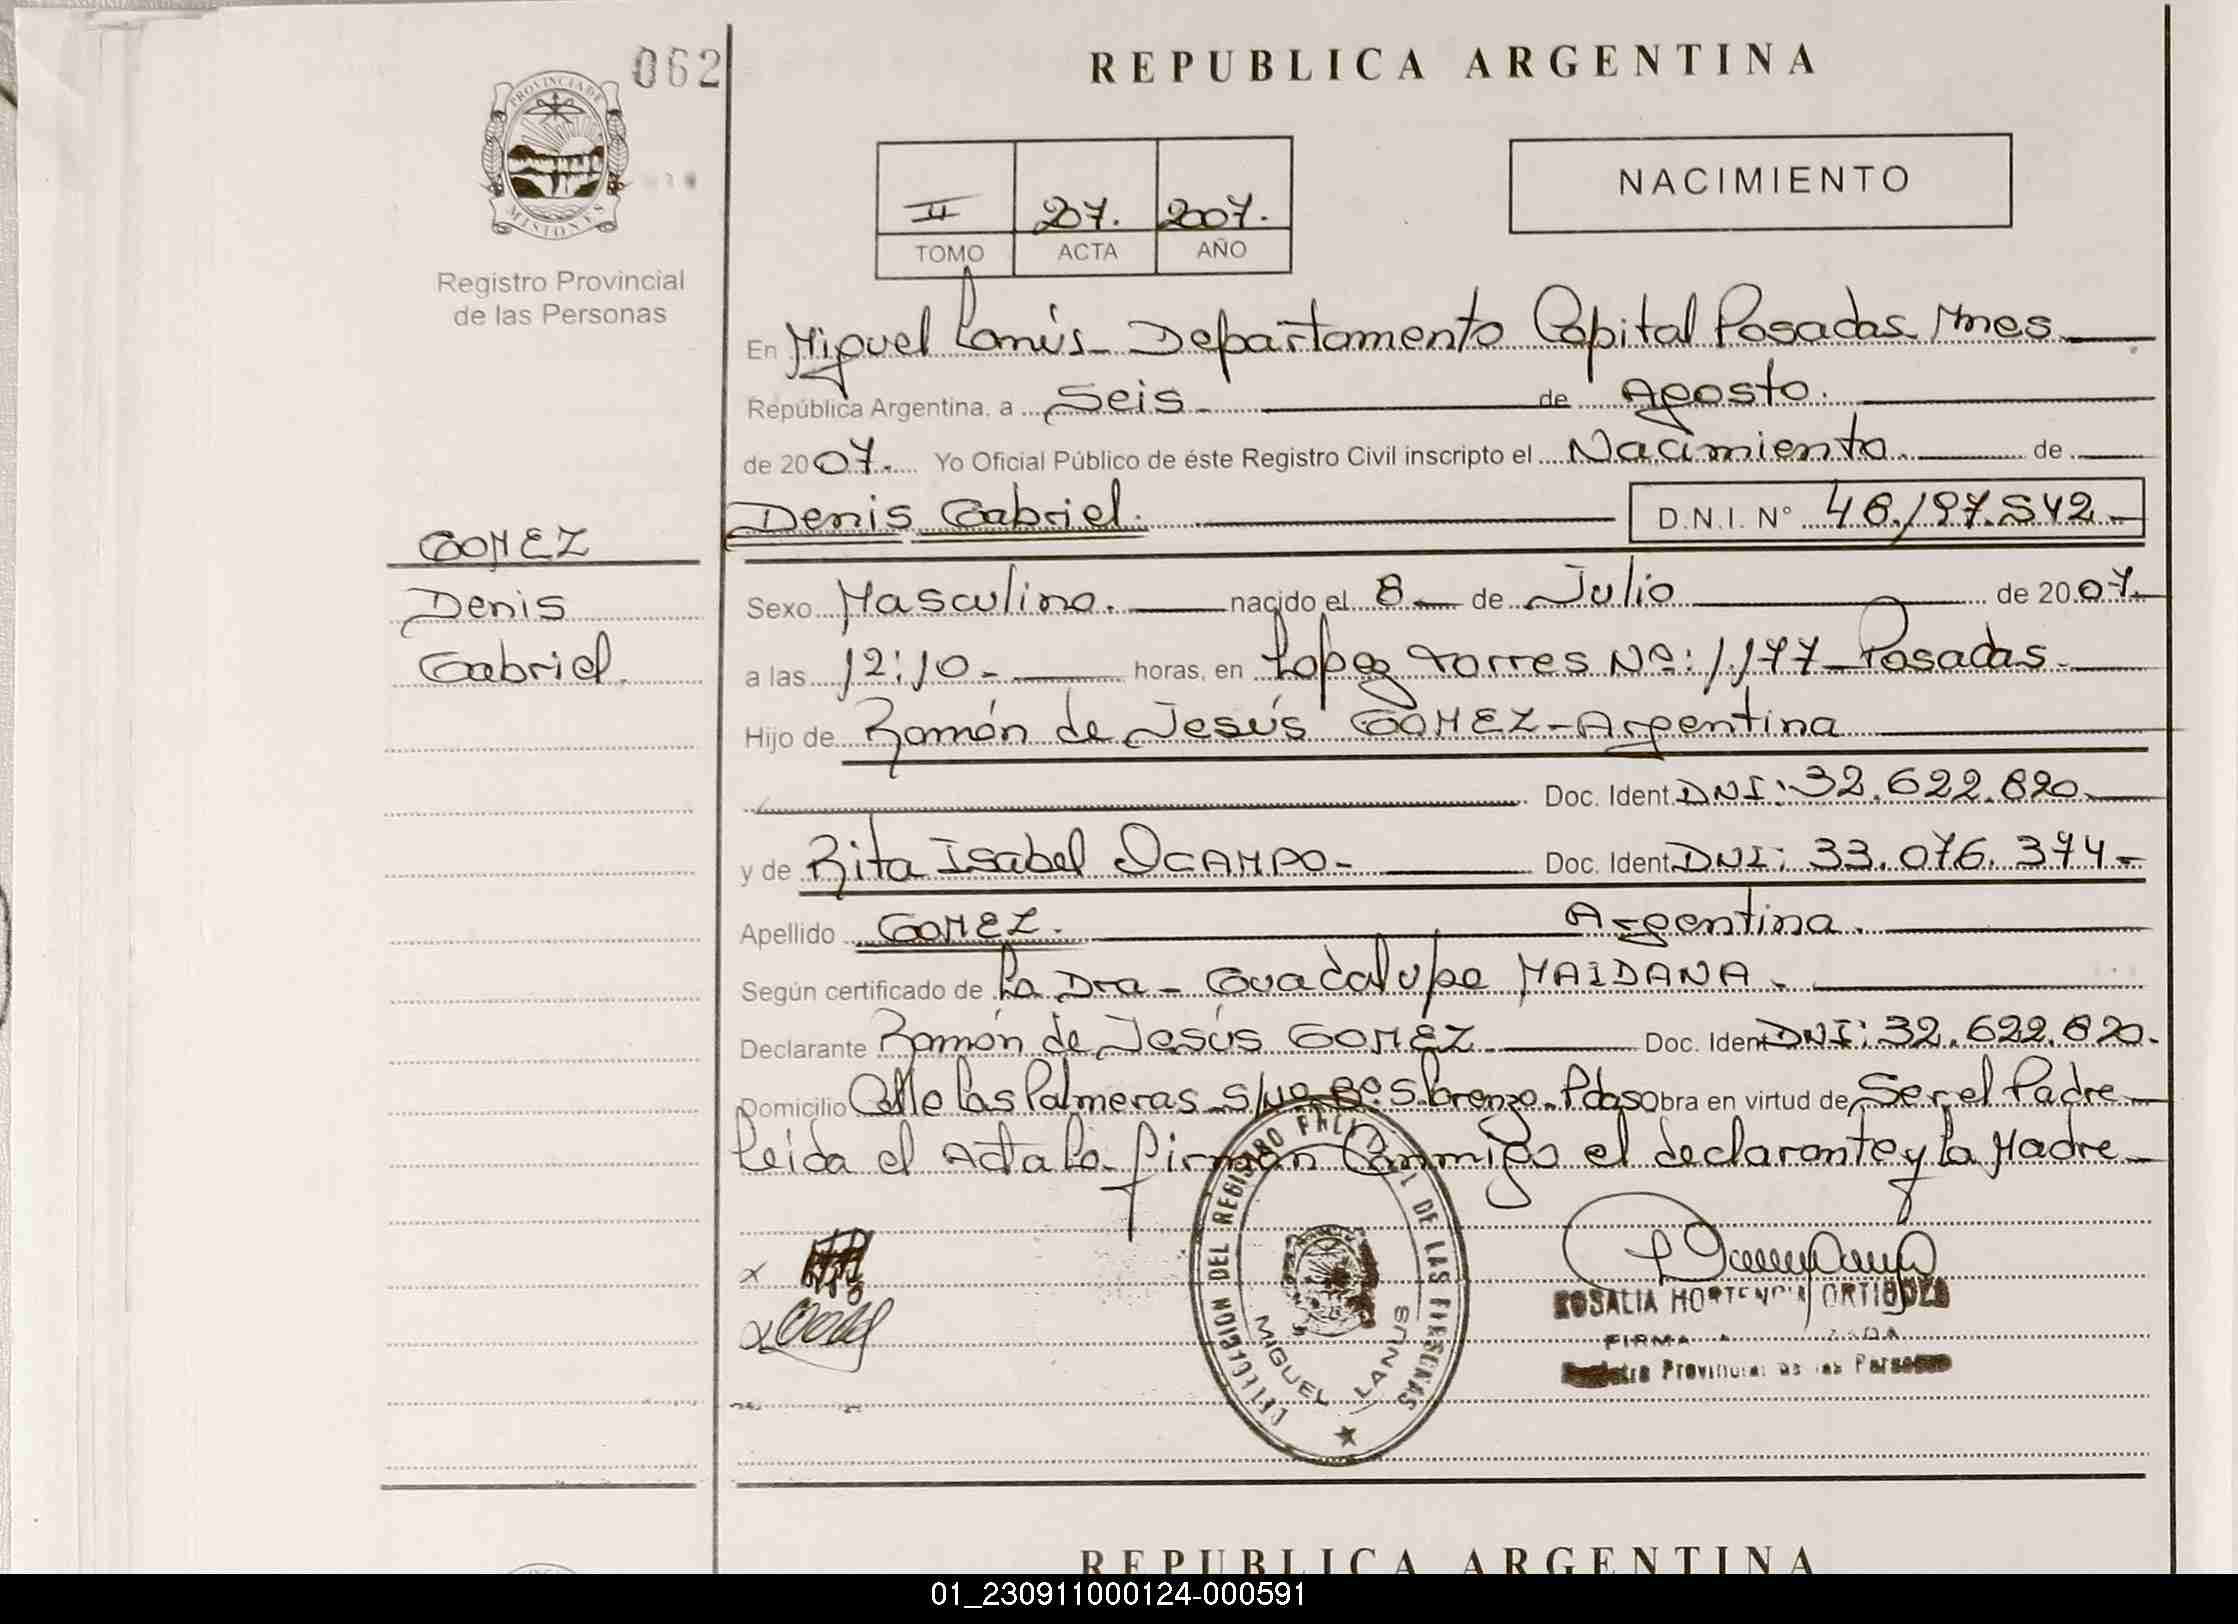 062
REPUBLICA ARGENTINA
PROVINCIA DE
MISIONES
Registro Provincial
de las Personas
NACIMIENTO
II 207. 2007.
TOMO ACTA AÑO
En Miguel Lanús - Departamento Capital Posadas Mnes
República Argentina, a Seis - de Agosto.
de 2007. Yo Oficial Público de éste Registro Civil inscripto el Nacimiento. de
Denis Gabriel. D.N.I. N° 48.197.542 -
GOMEZ
Denis
Gabriel.
Sexo Masculino. nacido el 8 de Julio de 2007.
a las 12:10 - horas, en Lopez Torres Nº: 1.177 - Posadas -
Hijo de Ramón de Jesús GOMEZ - Argentina
Doc. Ident. DNI: 32.622.820 -
y de Rita Isabel OCAMPO - Doc. Ident. DNI: 33.076.374 -
Apellido GOMEZ. Argentina.
Según certificado de La Dra - Guadalupe MAIDANA -
Declarante Ramón de Jesús GOMEZ Doc. Ident DNI: 32.622.820.
Domicilio Calle Las Palmeras - S/Nº Bº S. Lorenzo - Pdas Obra en virtud de Ser el Padre
Leida el Acta La firman Conmigo el declarante y La Madre -
DEL REGISTRO DE LAS PERSONAS
MIGUEL LANUS
ROSALIA HORTENCIA
FIRMA
Registro Provincial de las Personas
REPUBLICA ARGENTINA
01_230911000124-000591